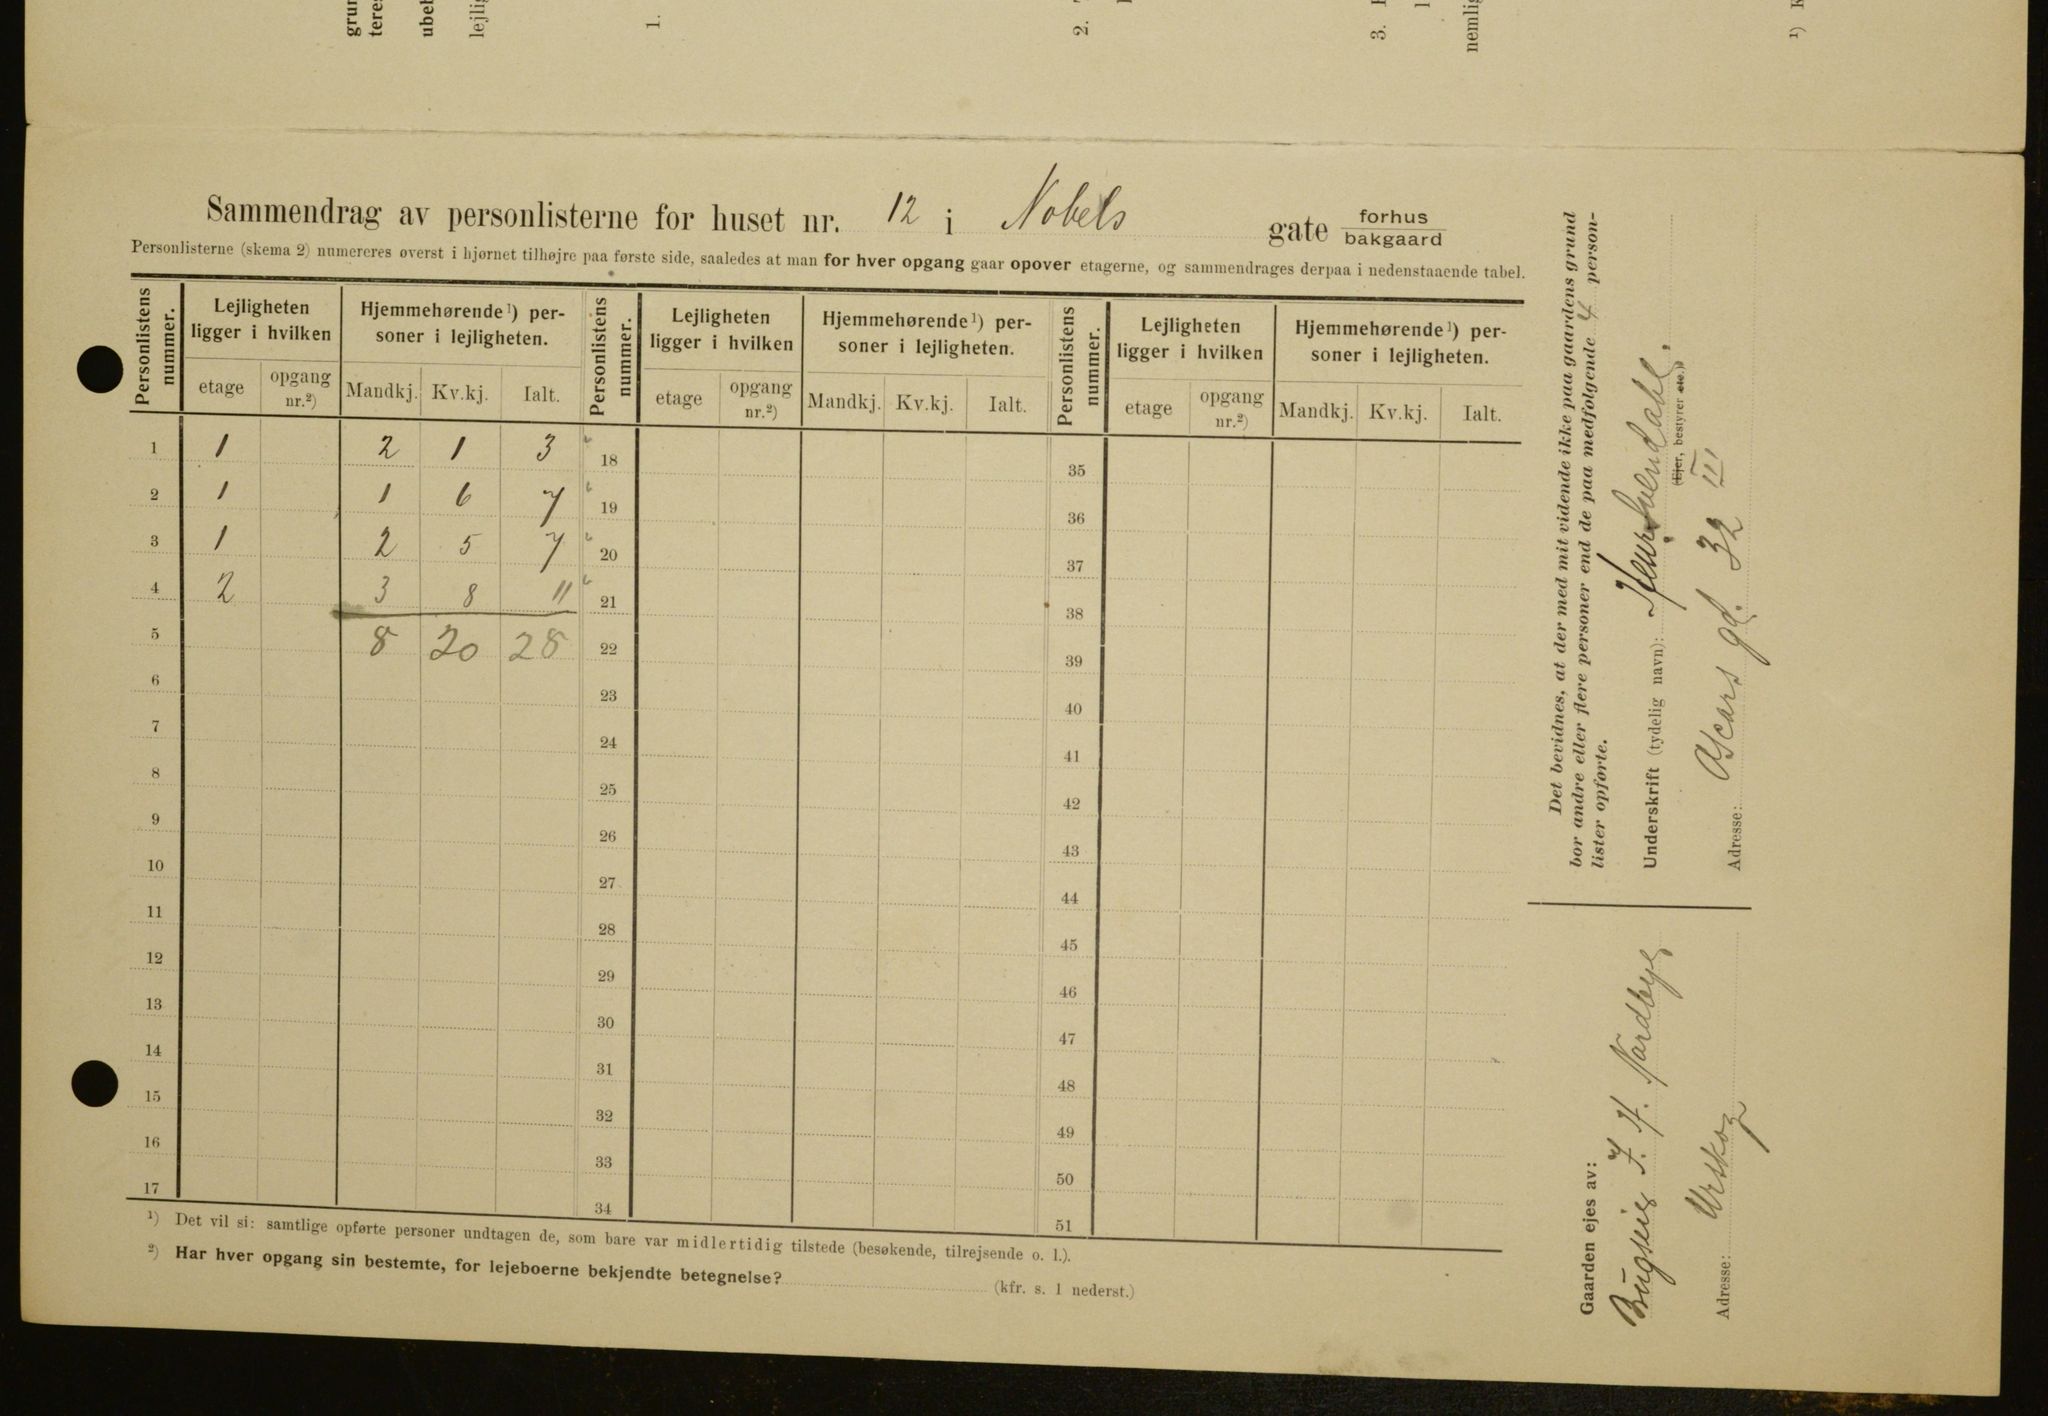 grun
teres
ubeb
lejlig
1.
2.
3.
nemlig
¹) K
Sammendrag av personlisterne for huset nr. 12 i Nobels gate forhus
bakgaard
Personlisterne (skema 2) numereres øverst i hjørnet tilhøjre paa første side, saaledes at man for hver opgang gaar opover etagerne, og sammendrages derpaa i nedenstaaende tabel.
Personlistens nummer. Lejligheten ligger i hvilken Hjemmehørende ¹) personer i lejligheten. Personlistens nummer. Lejligheten ligger i hvilken Hjemmehørende ¹) personer i lejligheten. Personlistens nummer. Lejligheten ligger i hvilken Hjemmehørende ¹) personer i lejligheten.
etage opgang nr.²) Mandkj. Kv.kj. Ialt. etage opgang nr.²) Mandkj. Kv.kj. Ialt. etage opgang nr.²) Mandkj. Kv.kj. Ialt.
1 1 2 1 3 18 35
2 1 1 6 7 19 36
3 1 2 5 7 20 37
4 2 3 8 11 21 38
5 8 20 28 22 39
6 23 40
7 24 41
8 25 42
9 26 43
10 27 44
11 28 45
12 29 46
13 30 47
14 31 48
15 32 49
16 33 50
17 34 51
¹) Det vil si: samtlige opførte personer undtagen de, som bare var midlertidig tilstede (besøkende, tilrejsende o. l.).
²) Har hver opgang sin bestemte, for lejeboerne bekjendte betegnelse? (kfr. s. 1 nederst.)
Det bevidnes, at der med mit vidende ikke paa gaardens grund
bor andre eller flere personer end de paa medfølgende 4 person-
lister opførte.
Underskrift (tydelig navn):
(Ejer, bestyrer etc.)
Adresse: Oscars gd. 32 III
Gaarden ejes av:
F. H. Nordbye
Adresse: Urskog